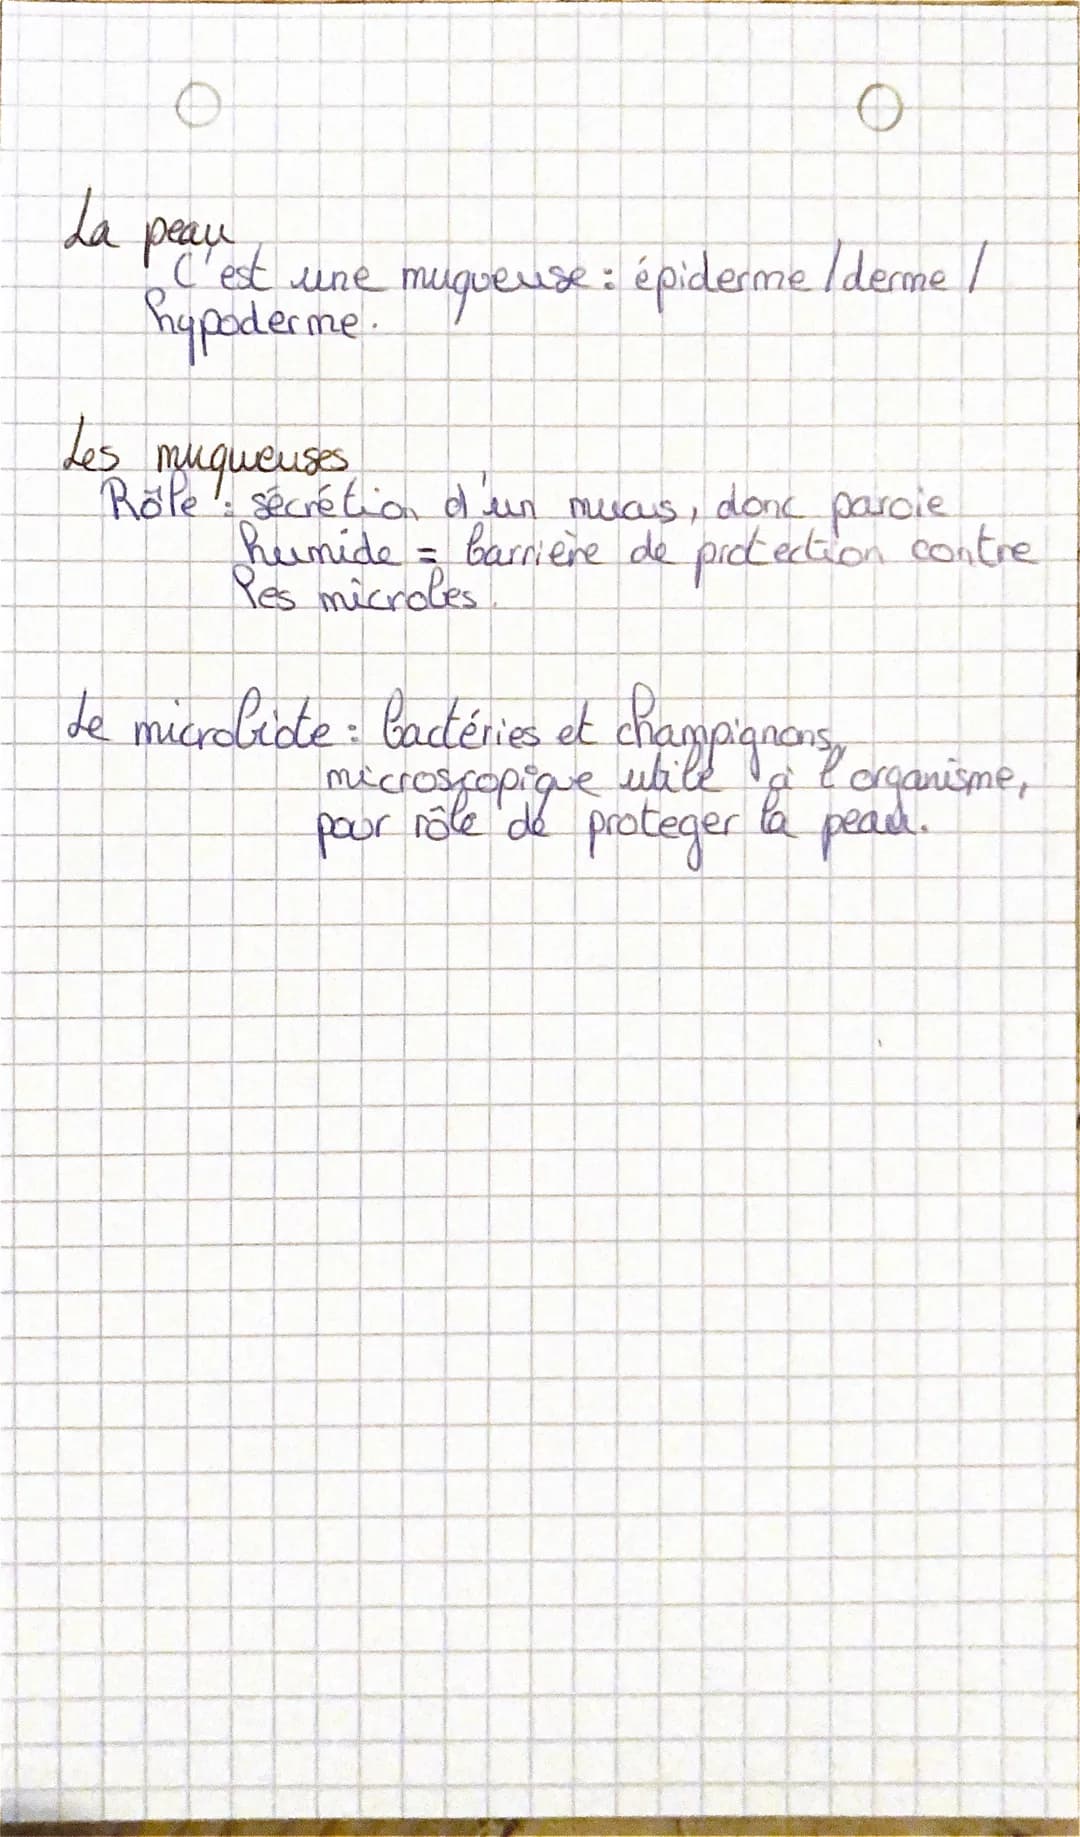 La peau
C'est une muqueuse : épiderme / derme /
hypoderme.
Les muqueuses
Rôle : sécrétion d'un mucus, donc paroie
humide = barrière de protection contre
les microbes.
Le microbiote : bactéries et champignons,
microscopique utile à l'organisme,
pour rôle de proteger la peau.